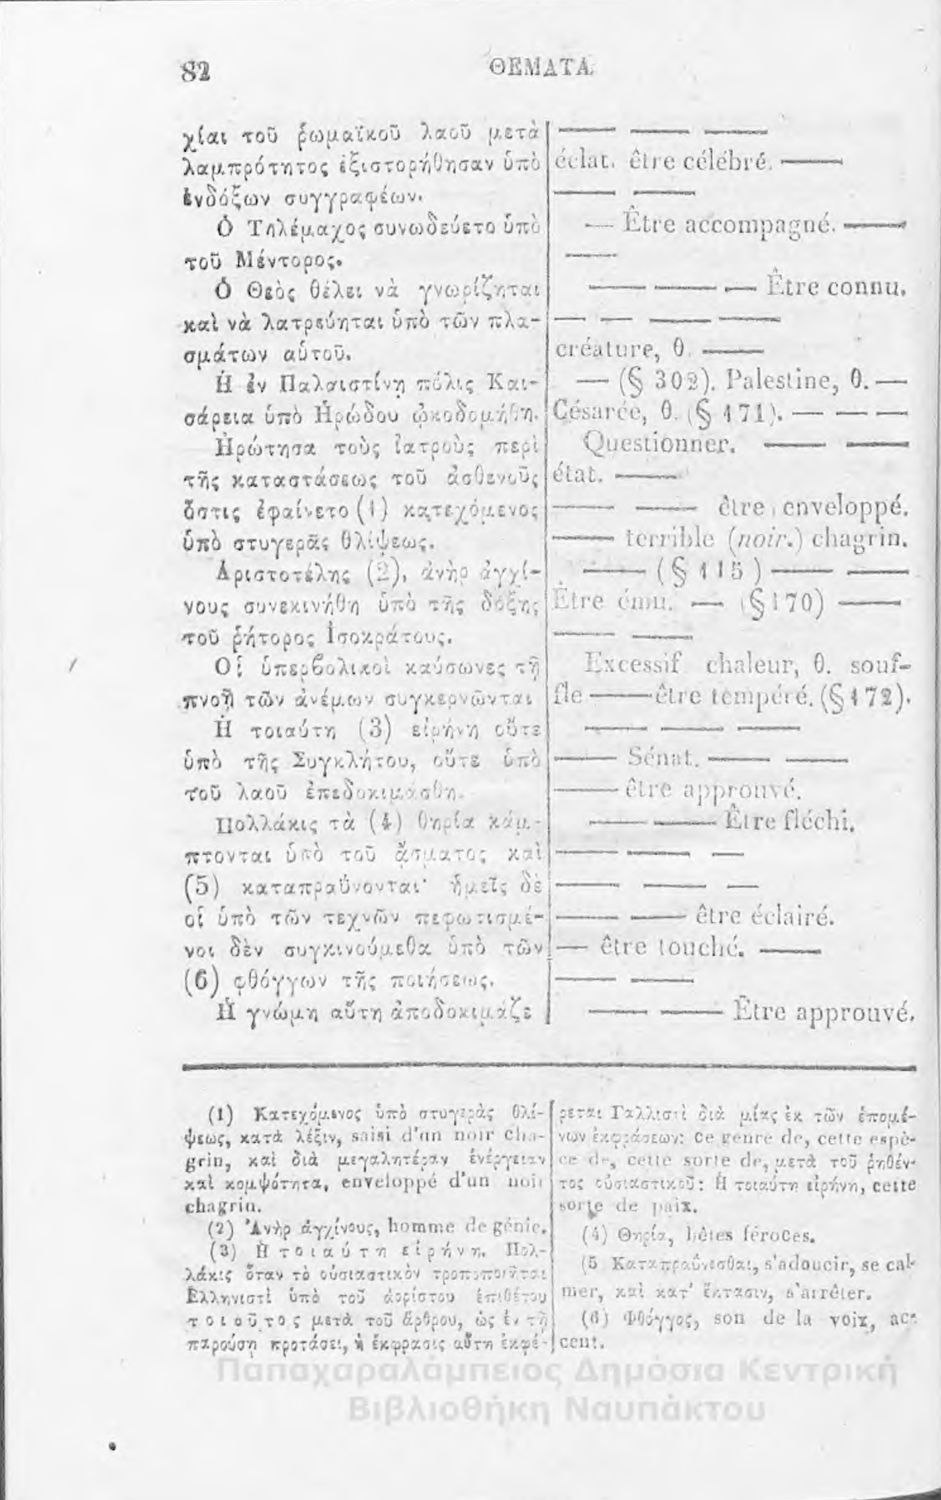 82
ΘΕΜΑΤΑ.
χίαι τοῦ ῥωμαϊκοῦ λαοῦ μετὰ
λαμπρότητος ἐξιστορήθησαν ὑπὸ
ἐνδόξων συγγραφέων.
Ὁ Τηλέμαχος συνωδεύετο ὑπὸ
τοῦ Μέντορος.
Ὁ Θεὸς θέλει νὰ γνωρίζηται
καὶ νὰ λατρεύηται ὑπὸ τῶν πλα-
σμάτων αὐτοῦ.
Ἡ ἐν Παλαιστίνῃ πόλις Και-
σάρεια ὑπὸ Ἡρώδου ᾠκοδομήθη.
Ἠρώτησα τοὺς ἰατροὺς περὶ
τῆς καταστάσεως τοῦ ἀσθενοῦς
ὅστις ἐφαίνετο (1) κατεχόμενος
ὑπὸ στυγερᾶς θλίψεως.
Ἀριστοτέλης (2), ἀνὴρ ἀγχί-
νους συνεκινήθη ὑπὸ τῆς δόξης
τοῦ ῥήτορος Ἰσοκράτους.
Οἱ ὑπερβολικοὶ καύσωνες τῇ
πνοῇ τῶν ἀνέμων συγκερνῶνται
Ἡ τοιαύτη (3) εἰρήνη οὔτε
ὑπὸ τῆς Συγκλήτου, οὔτε ὑπὸ
τοῦ λαοῦ ἐπεδοκιμάσθη.
Πολλάκις τὰ (4) θηρία κάμ-
πτονται ὑπὸ τοῦ ᾄσματος καὶ
(5) καταπραΰνονται· ἡμεῖς δὲ
οἱ ὑπὸ τῶν τεχνῶν πεφωτισμέ-
νοι δὲν συγκινούμεθα ὑπὸ τῶν
(6) φθόγγων τῆς ποιήσεως.
Ἡ γνώμη αὕτη ἀποδοκιμάζε
——— ——— ———
éclat. être célébré. ———
——— ———
— Être accompagné. ———
———
——— ——— — Être connu.
— — ——— ———
créature, 0. ———
— (§ 302). Palestine, 0. —
Césarée, 0. (§ 171). — — —
Questionner. ——— ———
état. ———
——— ——— être enveloppé.
——— terrible (noir.) chagrin.
——— (§ 115) ——— ———
Être ému. — (§ 170) ———
——— ———
Excessif chaleur, 0. souf-
fle ——— être tempéré. (§ 172).
——— ——— ———
——— Sénat. ——— ———
——— être approuvé.
——— ——— Être fléchi.
——— — —
——— — —
——— ——— être éclairé.
— être touché. ———
——— ———
——— ——— Être approuvé.
(1) Κατεχόμενος ὑπὸ στυγερᾶς θλί-
ψεως, κατὰ λέξιν, saisi d'un noir cha-
grin, καὶ διὰ μεγαλητέραν ἐνέργειαν
καὶ κομψότητα, enveloppé d'un noir
chagrin.
(2) Ἀνὴρ ἀγχίνους, homme de génie.
(3) Ἡ τοιαύτη εἰρήνη. Πολ-
λάκις ὅταν τὸ οὐσιαστικὸν τροποποιῆται
Ἑλληνιστὶ ὑπὸ τοῦ ἀορίστου ἐπιθέτου
τοιοῦτος μετὰ τοῦ ἄρθρου, ὡς ἐν τῇ
παρούσῃ προτάσει, ἡ ἔκφρασις αὕτη ἐκφέ-
ρεται Γαλλιστὶ διὰ μίας ἐκ τῶν ἑπομέ-
νων ἐκφράσεων: Ce genre de, cette espè-
ce de, cette sorte de, μετὰ τοῦ ῥηθέν-
τος οὐσιαστικοῦ: Ἡ τοιαύτη εἰρήνη, cette
sorte de paix.
(4) Θηρία, bêtes féroces.
(5 Καταπραΰνεσθαι, s'adoucir, se cal-
mer, καὶ κατ' ἔκτασιν, s'arrêter.
(6) Φθόγγος, son de la voix, ac-
cent.
Παπαχαραλάμπειος Δημόσια Κεντρική
Βιβλιοθήκη Ναυπάκτου